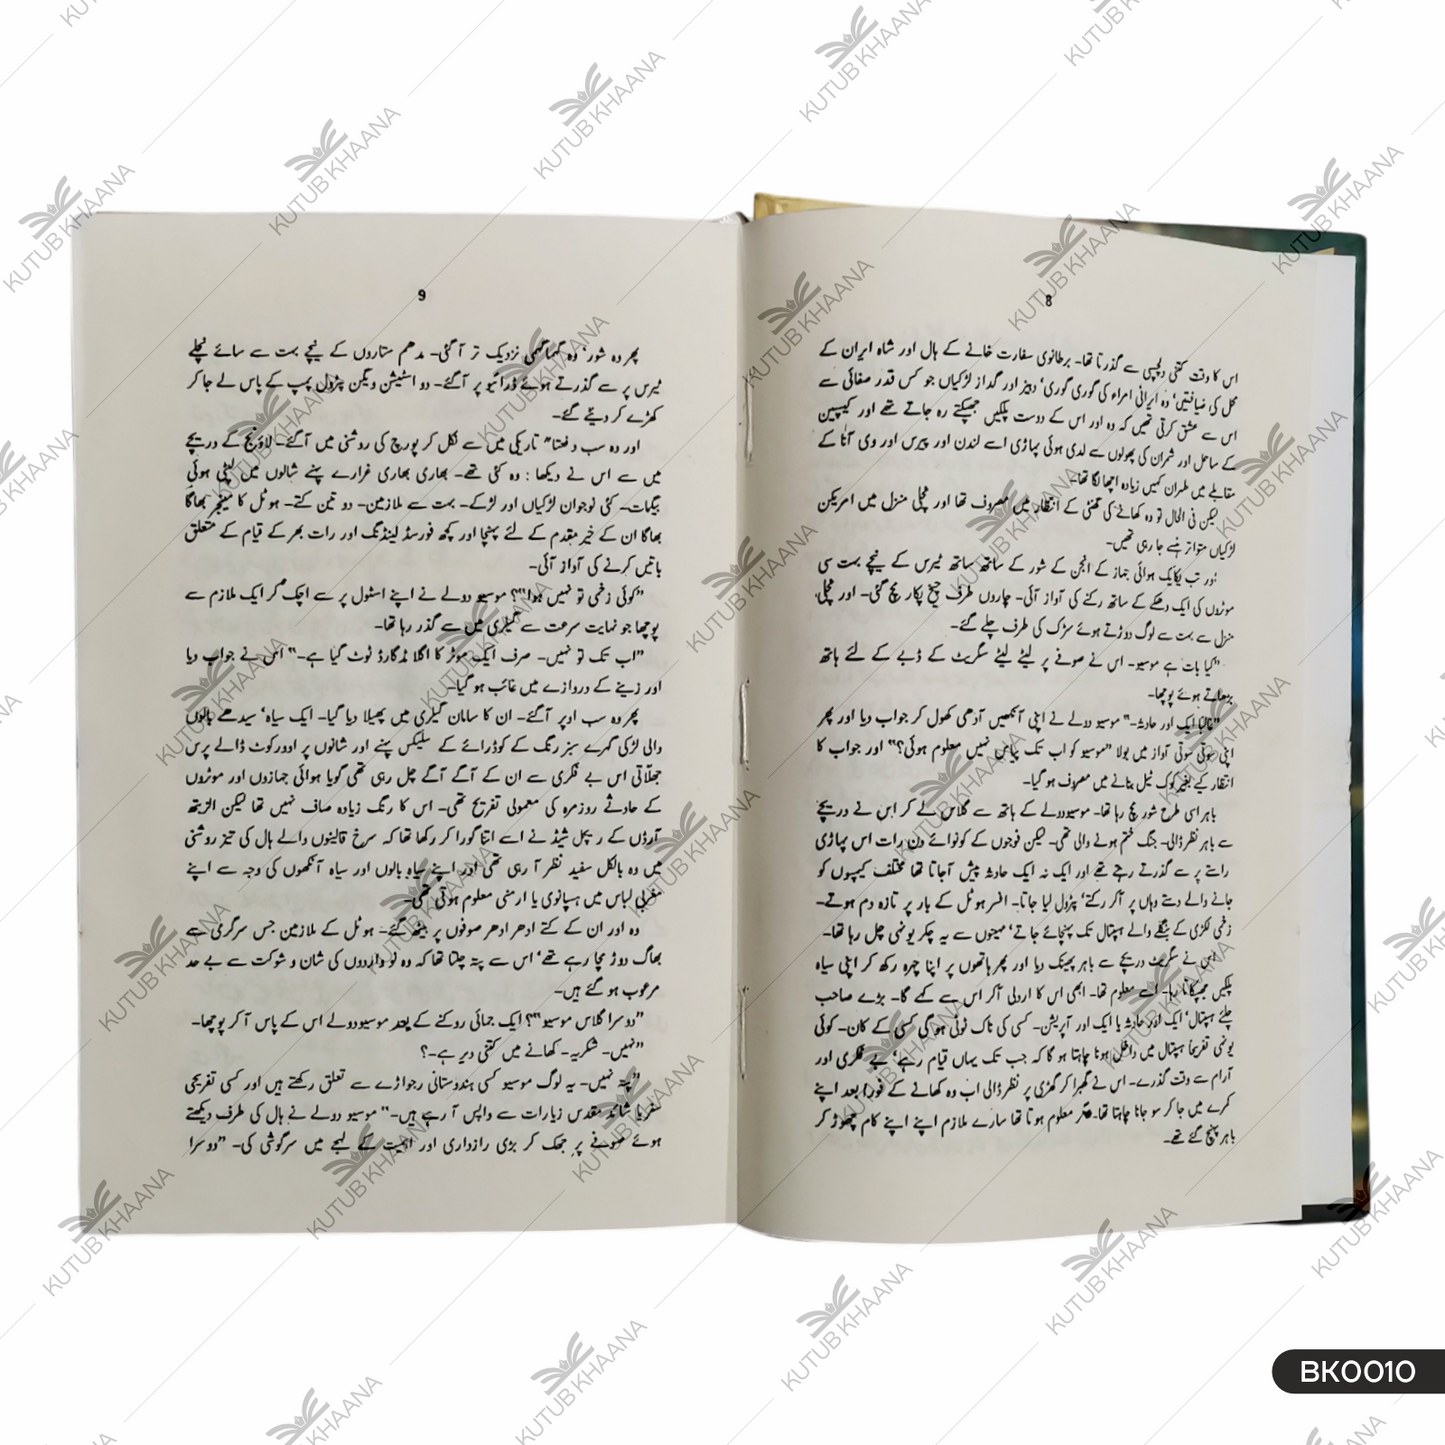 8
اس کا وقت کتنی دلچسپی سے گذرتا تھا۔ برطانوی سفارت خانے کے ہال اور شاہ ایران کے
محل کی ضیافتیں، وہ ایرانی امراء کی گوری گوری، دبیز اور گداز لڑکیاں جو کس قدر صفائی سے
اس سے عشق کرتی تھیں کہ وہ اور اس کے دوست پلکیں جھپکتے رہ جاتے تھے اور کیسپین
کے ساحل اور شمران کی پھولوں سے لدی ہوئی پہاڑی اسے لندن اور پیرس اور وی آنا کے
مقابلے میں طہران کہیں زیادہ اچھا لگا تھا۔
لیکن فی الحال تو وہ کھانے کی گھنٹی کے انتظار میں مصروف تھا اور نچلی منزل میں امریکن
لڑکیاں متواتر ہنسے جا رہی تھیں۔
اور تب یکایک ہوائی جہاز کے انجن کے شور کے ساتھ ساتھ ٹیرس کے نیچے بہت سی
موٹروں کی ایک دھکے کے ساتھ رکنے کی آواز آئی۔ چاروں طرف چیخ پکار مچ گئی۔ اور نچلی
منزل سے بہت سے لوگ دوڑتے ہوئے سڑک کی طرف چلے گئے۔
"کیا بات ہے موسیو۔ اس نے صوفے پر لیٹے لیٹے سگریٹ کے ڈبے کے لئے ہاتھ
بڑھاتے ہوئے پوچھا۔
"غالباً ایک اور حادثہ۔" موسیو دولے نے اپنی آنکھیں آدھی کھول کر جواب دیا اور پھر
اپنی سوئی سوئی آواز میں بولا "موسیو کو اب تک پیاس نہیں معلوم ہوئی؟" اور جواب کا
انتظار کیے بغیر کوک ٹیل بنانے میں مصروف ہو گیا۔
باہر اسی طرح شور مچ رہا تھا۔ موسیو دولے کے ہاتھ سے گلاس لے کر اس نے دریچے
سے باہر نظر ڈالی۔ جنگ ختم ہونے والی تھی۔ لیکن فوجوں کے کونوائے دن رات اس پہاڑی
راستے پر سے گذرتے رہتے تھے اور ایک نہ ایک حادثہ پیش آجاتا تھا مختلف کیمپوں کو
جانے والے دستے وہاں پر آکر رکتے، پٹرول لیا جاتا۔ افسر ہوٹل کے بار پر تازہ دم ہوتے۔
زخمی لکڑی کے بنگلے والے ہسپتال تک پہنچائے جاتے، مہینوں سے یہ چکر یونہی چل رہا تھا۔
اس نے سگریٹ دریچے سے باہر پھینک دیا اور پھر ہاتھوں پر اپنا چہرہ رکھ کر اپنی سیاہ
پلکیں جھپکاتا رہا۔ اسے معلوم تھا۔ ابھی اس کا اردلی آکر اس سے کہے گا۔ بڑے صاحب
چلئے ہسپتال، ایک اور حادثہ یا ایک اور آپریشن۔ کسی کی ناک ٹوٹی ہو گی کسی کے کان۔ کوئی
یونہی تفریحاً ہسپتال میں داخل ہونا چاہتا ہو گا کہ جب تک یہاں قیام رہے، بے فکری اور
آرام سے وقت گذرے۔ اس نے گھبرا کر گھڑی پر نظر ڈالی اب وہ کھانے کے فوراً بعد اپنے
کمرے میں جا کر سو جانا چاہتا تھا۔ مگر معلوم ہوتا تھا سارے ملازم اپنے اپنے کام چھوڑ کر
باہر پہنچ گئے تھے۔
9
پھر وہ شور، وہ گہما گہمی نزدیک تر آ گئی۔ مدھم ستاروں کے نیچے بہت سے سائے نچلے
ٹیرس پر سے گذرتے ہوئے ڈرائیو پر آگئے۔ دو اسٹیشن ویگن پٹرول پمپ کے پاس لے جا کر
کھڑے کر دیئے گئے۔
اور وہ سب دفعتاً تاریکی میں سے نکل کر پورچ کی روشنی میں آگئے۔ لاؤنج کے دریچے
میں سے اس نے دیکھا : وہ کئی تھے۔ بھاری بھاری غرارے پہنے شالوں میں لپٹی ہوئی
بیگمات۔ کئی نوجوان لڑکیاں اور لڑکے۔ بہت سے ملازمین۔ دو تین کتے۔ ہوٹل کا منیجر بھاگا
بھاگا ان کے خیر مقدم کے لئے پہنچا اور کچھ فورسڈ لینڈنگ اور رات بھر کے قیام کے متعلق
باتیں کرنے کی آواز آئی۔
"کوئی زخمی تو نہیں ہوا"؟ موسیو دولے نے اپنے اسٹول پر سے اچک کر ایک ملازم سے
پوچھا جو نہایت سرعت سے گیلری میں سے گذر رہا تھا۔
"اب تک تو نہیں۔ صرف ایک موٹر کا اگلا مڈگارڈ ٹوٹ گیا ہے۔" اس نے جواب دیا
اور زینے کے دروازے میں غائب ہو گیا۔
پھر وہ سب اوپر آگئے۔ ان کا سامان گیلری میں پھیلا دیا گیا۔ ایک سیاہ، سیدھے بالوں
والی لڑکی گہرے سبز رنگ کے کوڈرائے کے سلیکس پہنے اور شانوں پر اوورکوٹ ڈالے پرس
جھلاتی اس بے فکری سے ان کے آگے آگے چل رہی تھی گویا ہوائی جہازوں اور موٹروں
کے حادثے روزمرہ کی معمولی تفریح تھی۔ اس کا رنگ زیادہ صاف نہیں تھا لیکن الزبتھ
آرڈن کے ریچل شیڈ نے اسے اتنا گورا کر رکھا تھا کہ سرخ قالینوں والے ہال کی تیز روشنی
میں وہ بالکل سفید نظر آ رہی تھی اور اپنے سیاہ بالوں اور سیاہ آنکھوں کی وجہ سے اپنے
مغربی لباس میں ہسپانوی یا ارمنی معلوم ہوتی تھی۔
وہ اور ان کے کتے ادھر ادھر صوفوں پر بیٹھ گئے۔ ہوٹل کے ملازمین جس سرگرمی سے
بھاگ دوڑ مچا رہے تھے، اس سے پتہ چلتا تھا کہ وہ نو واردوں کی شان و شوکت سے بے حد
مرعوب ہو گئے ہیں۔
"دوسرا گلاس موسیو"؟ ایک جمائی روکنے کے بعد موسیو دولے اس کے پاس آ کر پوچھا۔
"نہیں۔ شکریہ۔ کھانے میں کتنی دیر ہے۔؟
"پتہ نہیں۔ یہ لوگ موسیو کسی ہندوستانی رجواڑے سے تعلق رکھتے ہیں اور کسی تفریحی
سفر یا شائد مقدس زیارات سے واپس آ رہے ہیں۔" موسیو دولے نے ہال کی طرف دیکھتے
ہوئے صوفے پر جھک کر بڑی رازداری اور اہمیت کے لہجے میں سرگوشی کی۔ "دوسرا
KUTUB KHAANA
BK0010